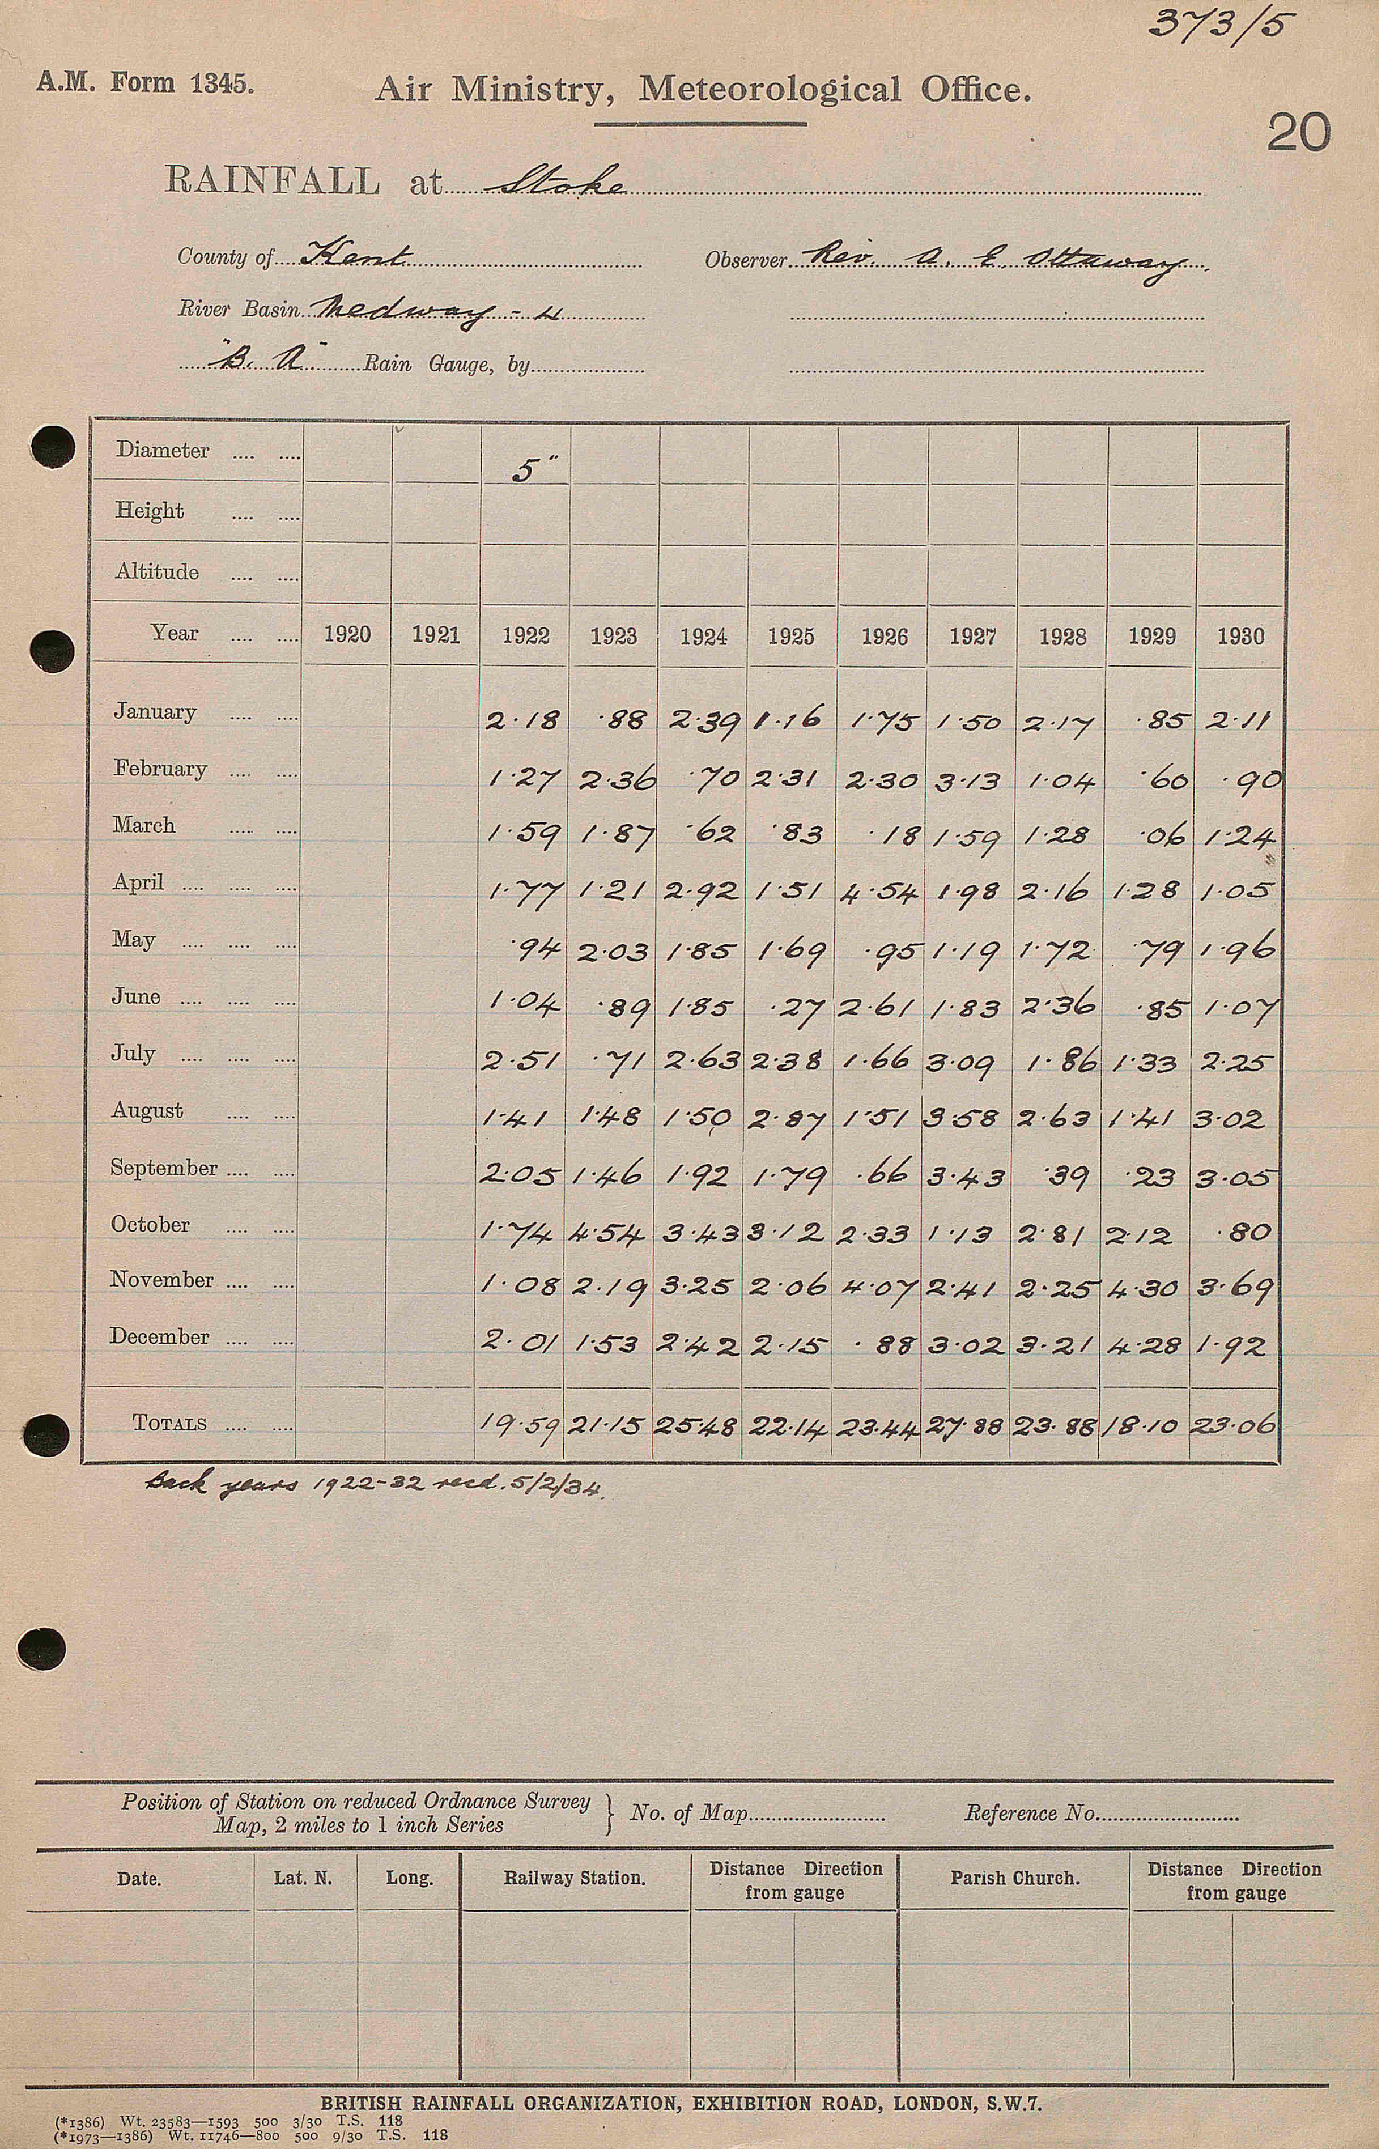 373/5
A.M. Form 1345. Air Ministry, Meteorological Office.
20
RAINFALL at Stoke
County of Kent Observer Rev. A. E. Ottaway
River Basin Medway - 4
"B. A" Rain Gauge, by
Diameter .... .... 5"
Height .... ....
Altitude .... ....
Year .... .... 1920 1921 1922 1923 1924 1925 1926 1927 1928 1929 1930
January .... .... 2.18 .88 2.39 1.16 1.75 1.50 2.17 .85 2.11
February .... .... 1.27 2.36 .70 2.31 2.30 3.13 1.04 .60 .90
March .... .... 1.59 1.87 .62 .83 .18 1.59 1.28 .06 1.24
April .... .... .... 1.77 1.21 2.92 1.51 4.54 1.98 2.16 1.28 1.05
May .... .... .... .94 2.03 1.85 1.69 .95 1.19 1.72 .79 1.96
June .... .... .... 1.04 .89 1.85 .27 2.61 1.83 2.36 .85 1.07
July .... .... .... 2.51 .71 2.63 2.38 1.66 3.09 1.86 1.33 2.25
August .... .... 1.41 1.48 1.50 2.87 1.51 3.58 2.63 1.41 3.02
September .... .... 2.05 1.46 1.92 1.79 .66 3.43 .39 .23 3.05
October .... .... 1.74 4.54 3.43 3.12 2.33 1.13 2.81 2.12 .80
November .... .... 1.08 2.19 3.25 2.06 4.07 2.41 2.25 4.30 3.69
December .... .... 2.01 1.53 2.42 2.15 .88 3.02 3.21 4.28 1.92
TOTALS .... .... 19.59 21.15 25.48 22.14 23.44 27.88 23.88 18.10 23.06
Back years 1922-32 recd. 5/2/34.
Position of Station on reduced Ordnance Survey
Map, 2 miles to 1 inch Series } No. of Map Reference No.
Date. Lat. N. Long. Railway Station. Distance Direction from gauge Parish Church. Distance Direction from gauge
BRITISH RAINFALL ORGANIZATION, EXHIBITION ROAD, LONDON, S.W.7.
(*1386) Wt. 23583—1593 500 3/30 T.S. 118
(*1973—1386) Wt. 11746—800 500 9/30 T.S. 118